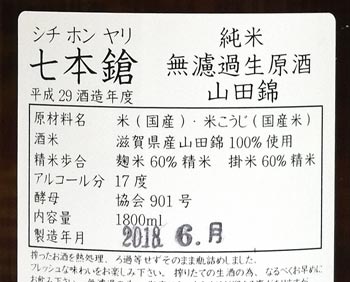 シチ ホン ヤリ
七本鎗
平成29酒造年度
純米
無濾過生原酒
山田錦
原材料名 米(国産)・米こうじ(国産米)
酒米 滋賀県産山田錦100%使用
精米歩合 麹米60%精米 掛米60%精米
アルコール分 17度
酵母 協会901号
内容量 1800ml
製造年月 2018 6.月
搾ったお酒を熱処理、ろ過等せずそのまま瓶詰めしました。
フレッシュな味わいをお楽しみ下さい。搾りたての生酒の為、なるべくお早めに